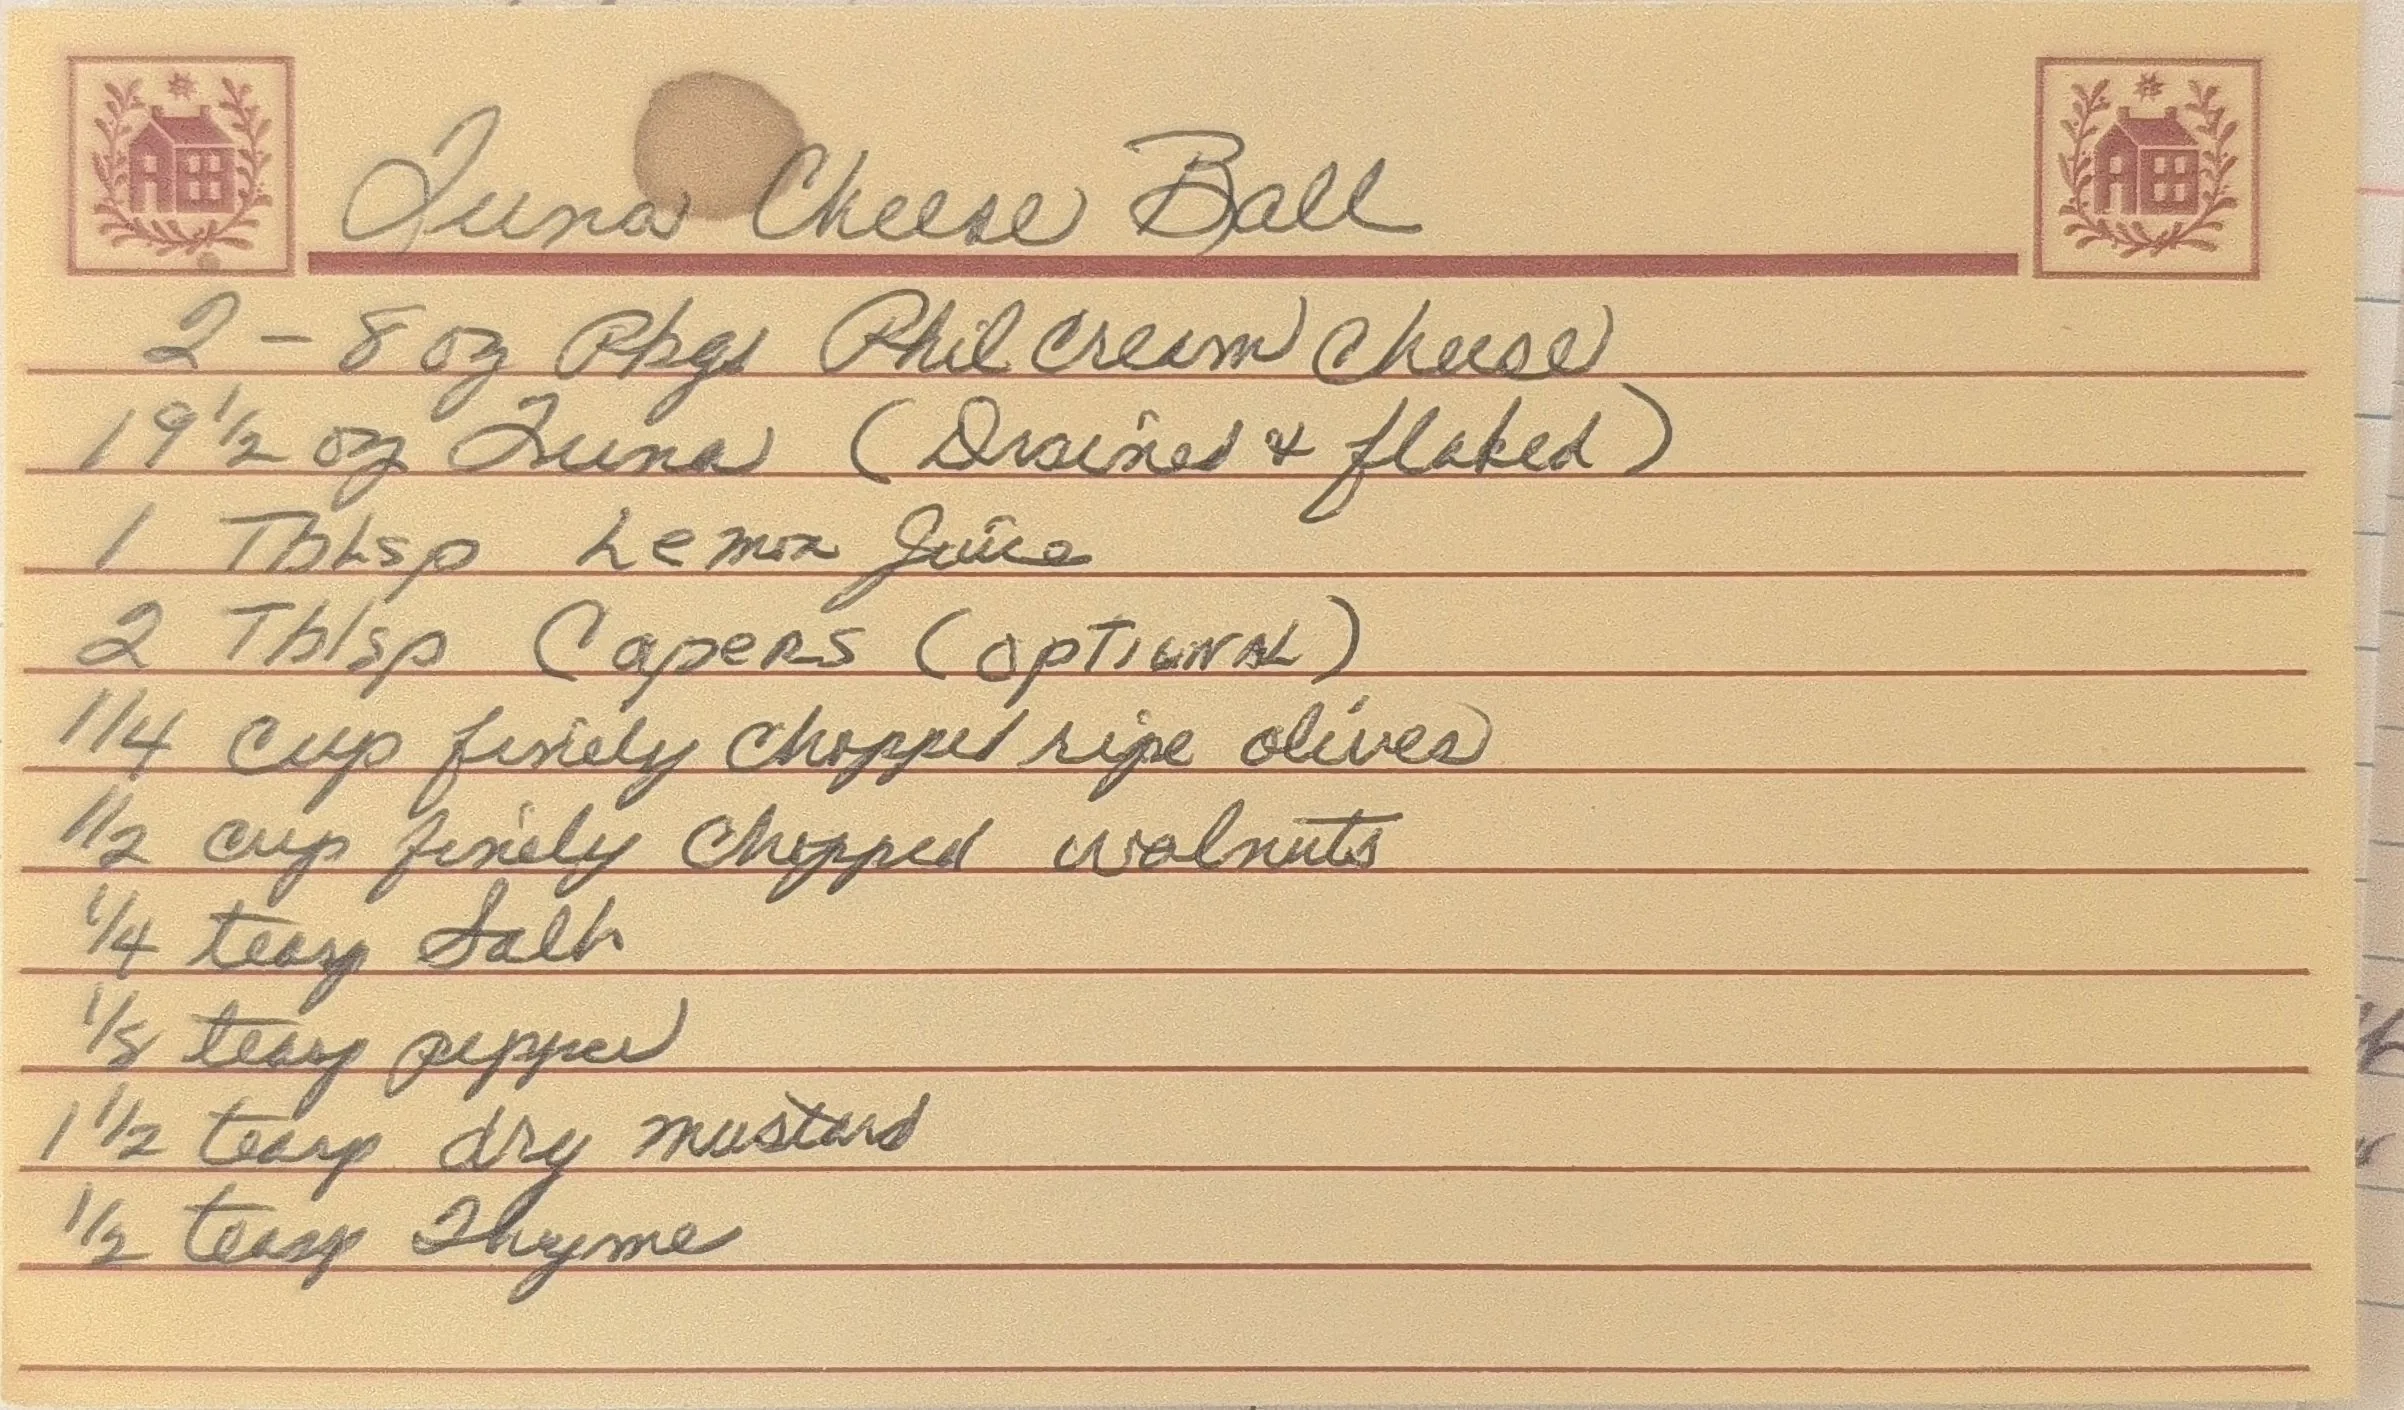 Tuna Cheese Ball
2 - 8 oz Pkgs Phil Cream Cheese
19 1/2 oz Tuna (Drained & flaked)
1 Tblsp Lemon Juice
2 Tblsp Capers (optional)
1/4 Cup finely chopped ripe olives
1/2 cup finely chopped walnuts
1/4 teasp Salt
1/8 teasp pepper
1 1/2 teasp dry mustard
1/2 teasp Thyme